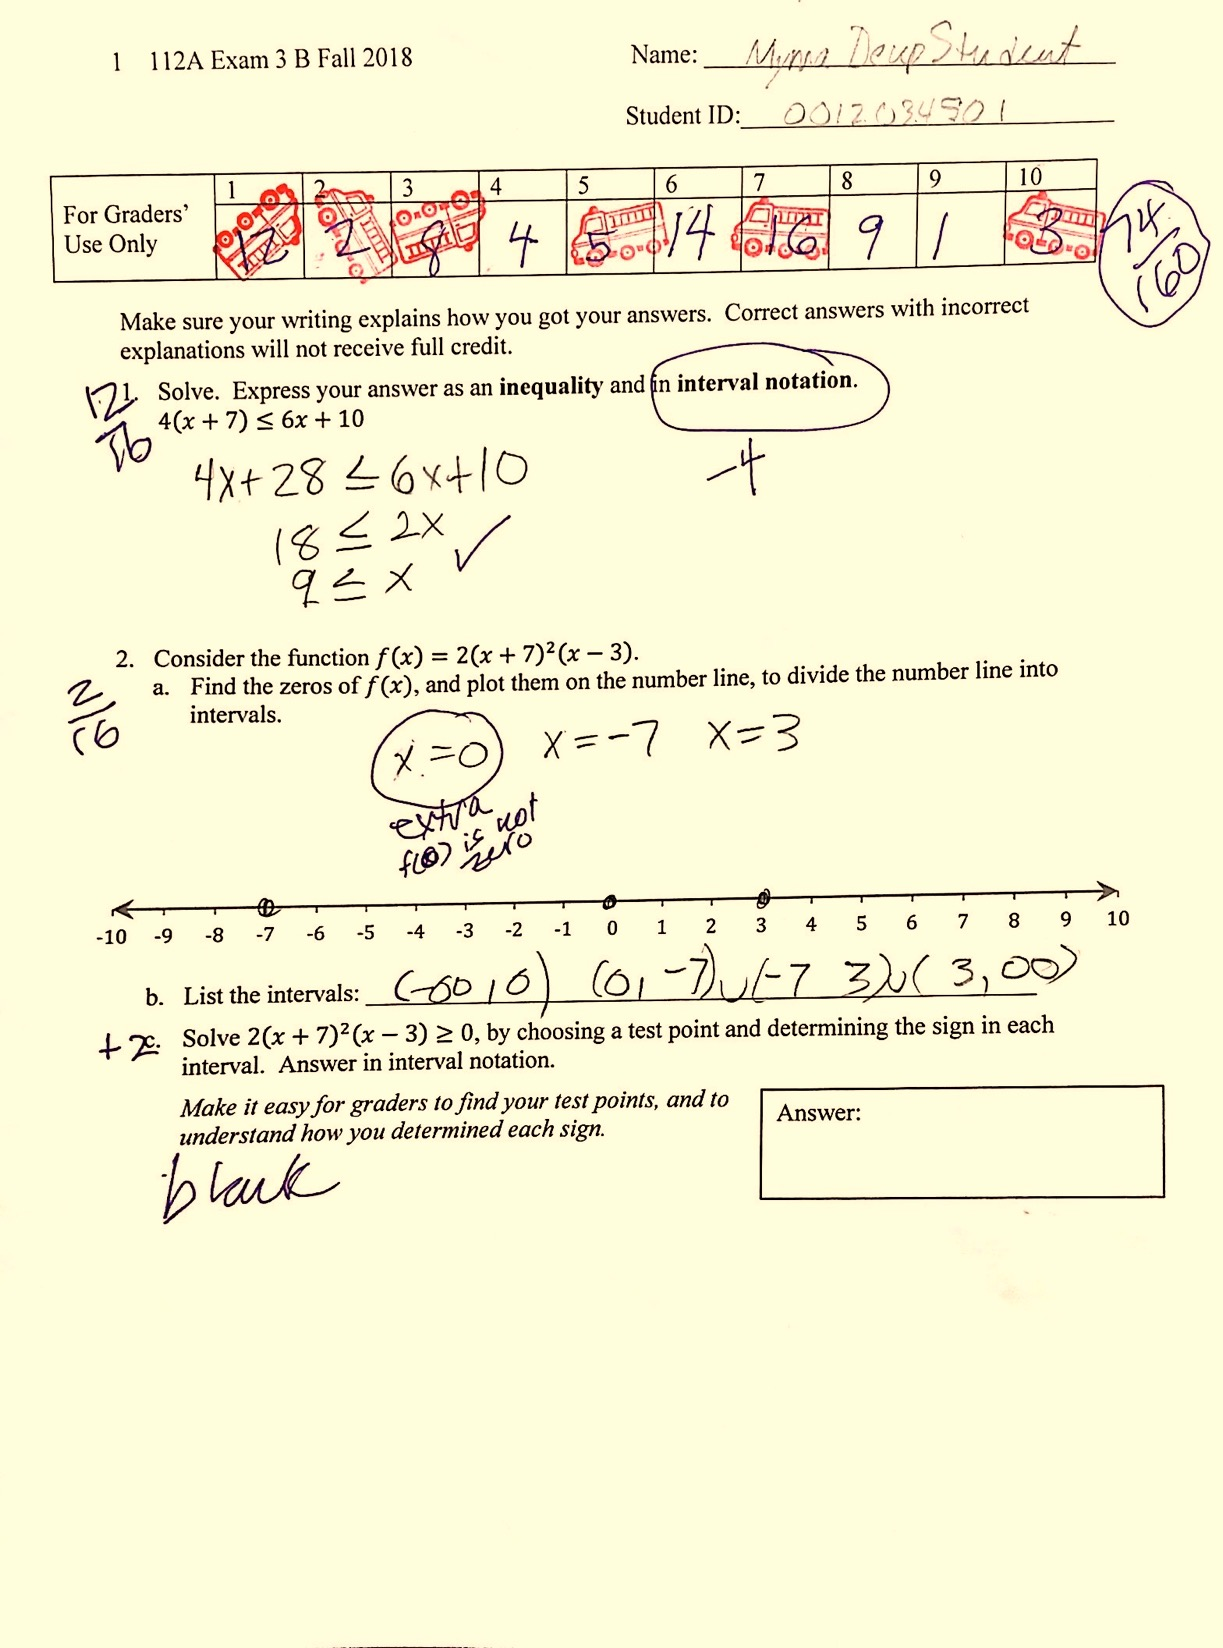 1 112A Exam 3 B Fall 2018
Name: Student
Student ID:
For Graders' Use Only
1 2 3 4 5 6 7 8 9 10
12 2 8 4 5 14 16 9 1 3
74/160
Make sure your writing explains how you got your answers. Correct answers with incorrect
explanations will not receive full credit.
12/16
1. Solve. Express your answer as an inequality and in interval notation.
4(x + 7) ≤ 6x + 10
4x+28 ≤ 6x+10
-4
18 ≤ 2x ✓
9 ≤ x
2. Consider the function f(x) = 2(x + 7)²(x − 3).
2/16
a. Find the zeros of f(x), and plot them on the number line, to divide the number line into
intervals.
x=0 x=-7 x=3
extra
f(0) is not
zero
-10 -9 -8 -7 -6 -5 -4 -3 -2 -1 0 1 2 3 4 5 6 7 8 9 10
b. List the intervals: (-∞,0) (0,-7)∪(-7 3)∪(3,∞)
+2
c. Solve 2(x + 7)²(x − 3) ≥ 0, by choosing a test point and determining the sign in each
interval. Answer in interval notation.
Make it easy for graders to find your test points, and to
understand how you determined each sign.
Answer:
blank